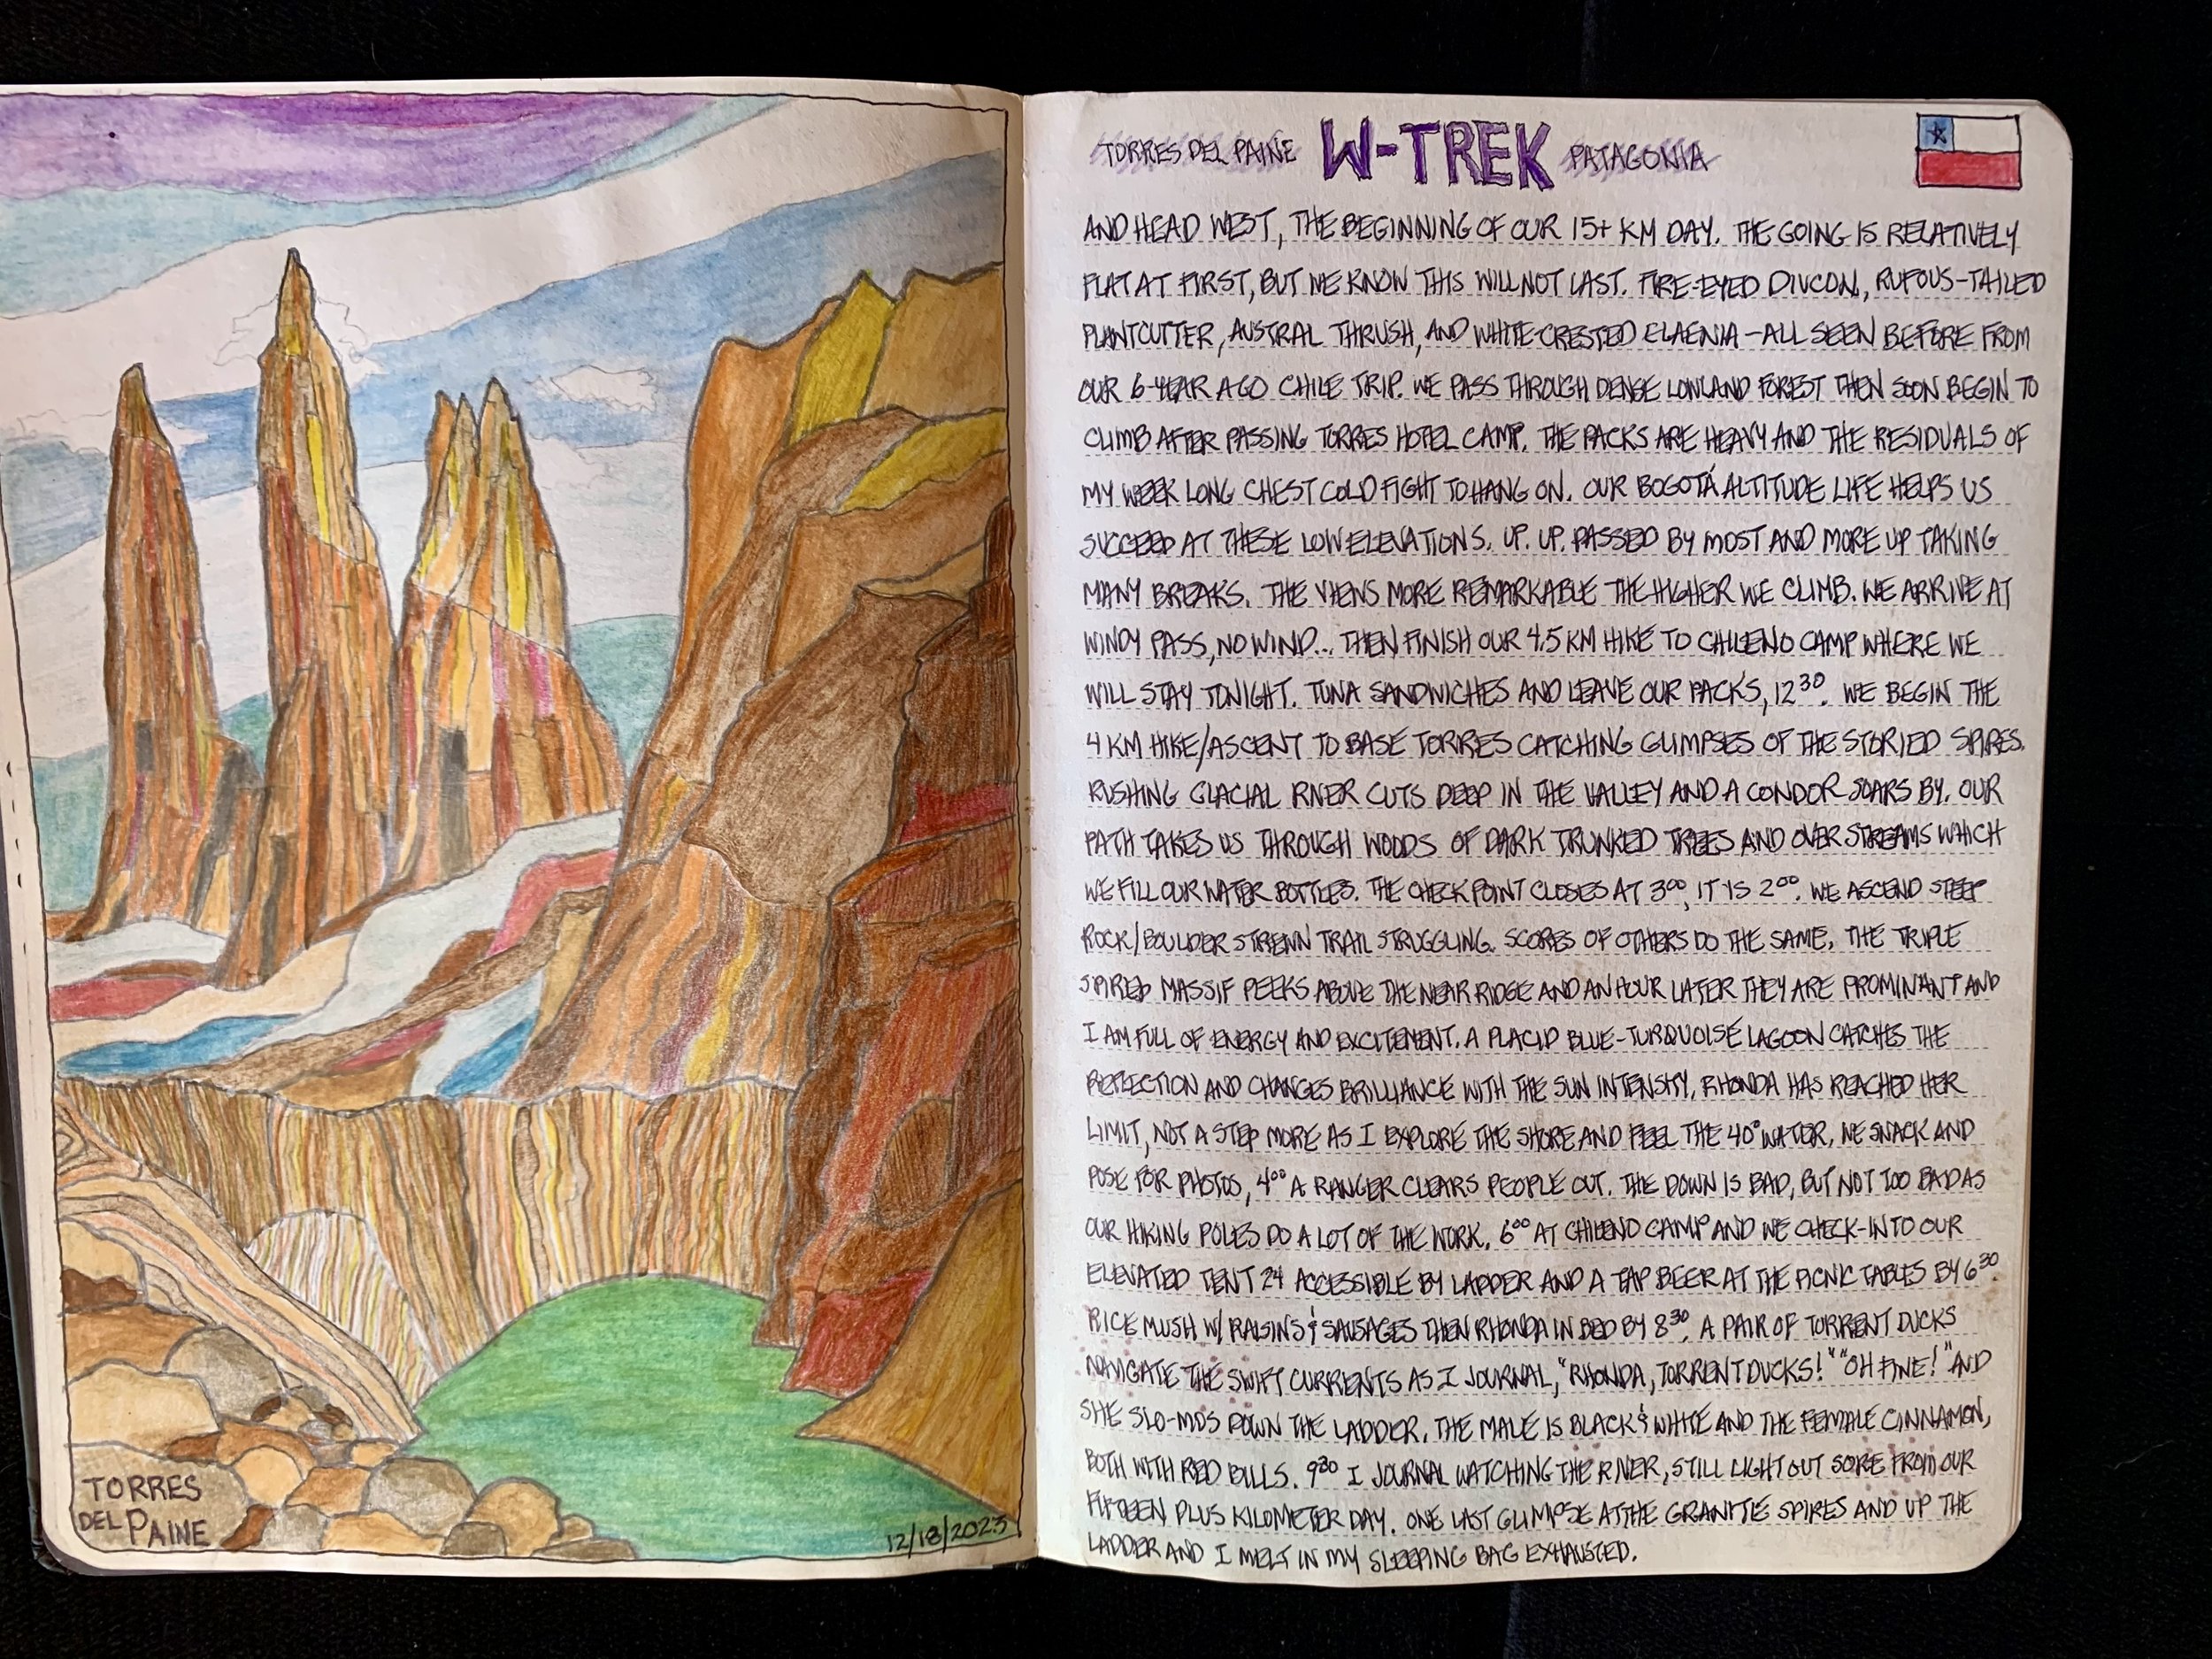 TORRES
DEL PAINE
12/18/2023
TORRES DEL PAINE W-TREK PATAGONIA
AND HEAD WEST, THE BEGINNING OF OUR 15+ KM DAY. THE GOING IS RELATIVELY
FLAT AT FIRST, BUT WE KNOW THIS WILL NOT LAST. FIRE-EYED DIUCON, RUFOUS-TAILED
PLANTCUTTER, AUSTRAL THRUSH, AND WHITE-CRESTED ELAENIA - ALL SEEN BEFORE FROM
OUR 6-YEAR AGO CHILE TRIP. WE PASS THROUGH DENSE LOWLAND FOREST THEN SOON BEGIN TO
CLIMB AFTER PASSING TORRES HOTEL CAMP. THE PACKS ARE HEAVY AND THE RESIDUALS OF
MY WEEK LONG CHEST COLD FIGHT TO HANG ON. OUR BOGOTÁ ALTITUDE LIFE HELPS US
SUCCEED AT THESE LOW ELEVATIONS. UP. UP. PASSED BY MOST AND MORE UP TAKING
MANY BREAKS. THE VIEWS MORE REMARKABLE THE HIGHER WE CLIMB. WE ARRIVE AT
WINDY PASS, NO WIND... THEN FINISH OUR 4.5 KM HIKE TO CHILENO CAMP WHERE WE
WILL STAY TONIGHT. TUNA SANDWICHES AND LEAVE OUR PACKS, 12³⁰. WE BEGIN THE
4 KM HIKE/ASCENT TO BASE TORRES CATCHING GLIMPSES OF THE STORIED SPIRES.
RUSHING GLACIAL RIVER CUTS DEEP IN THE VALLEY AND A CONDOR SOARS BY. OUR
PATH TAKES US THROUGH WOODS OF DARK TRUNKED TREES AND OVER STREAMS WHICH
WE FILL OUR WATER BOTTLES. THE CHECKPOINT CLOSES AT 3⁰⁰, IT IS 2⁰⁰. WE ASCEND STEEP
ROCK/BOULDER STREWN TRAIL STRUGGLING. SCORES OF OTHERS DO THE SAME. THE TRIPLE
SPIRED MASSIF PEEKS ABOVE THE NEAR RIDGE AND AN HOUR LATER THEY ARE PROMINANT AND
I AM FULL OF ENERGY AND EXCITEMENT. A PLACID BLUE-TURQUOISE LAGOON CATCHES THE
REFLECTION AND CHANGES BRILLIANCE WITH THE SUN INTENSITY. RHONDA HAS REACHED HER
LIMIT, NOT A STEP MORE AS I EXPLORE THE SHORE AND FEEL THE 40° WATER. WE SNACK AND
POSE FOR PHOTOS, 4⁰⁰ A RANGER CLEARS PEOPLE OUT. THE DOWN IS BAD, BUT NOT TOO BAD AS
OUR HIKING POLES DO A LOT OF THE WORK. 6⁰⁰ AT CHILENO CAMP AND WE CHECK-IN TO OUR
ELEVATED TENT 24 ACCESSIBLE BY LADDER AND A TAP BEER AT THE PICNIC TABLES BY 6³⁰.
RICE MUSH W/ RAISINS & SAUSAGES THEN RHONDA IN BED BY 8³⁰. A PAIR OF TORRENT DUCKS
NAVIGATE THE SWIFT CURRENTS AS I JOURNAL, "RHONDA, TORRENT DUCKS!" "OH FINE!" AND
SHE SLO-MOS DOWN THE LADDER. THE MALE IS BLACK & WHITE AND THE FEMALE CINNAMON,
BOTH WITH RED BILLS. 9³⁰ I JOURNAL WATCHING THE RIVER, STILL LIGHT OUT SORE FROM OUR
FIFTEEN PLUS KILOMETER DAY. ONE LAST GLIMPSE AT THE GRANITE SPIRES AND UP THE
LADDER AND I MELT IN MY SLEEPING BAG EXHAUSTED.